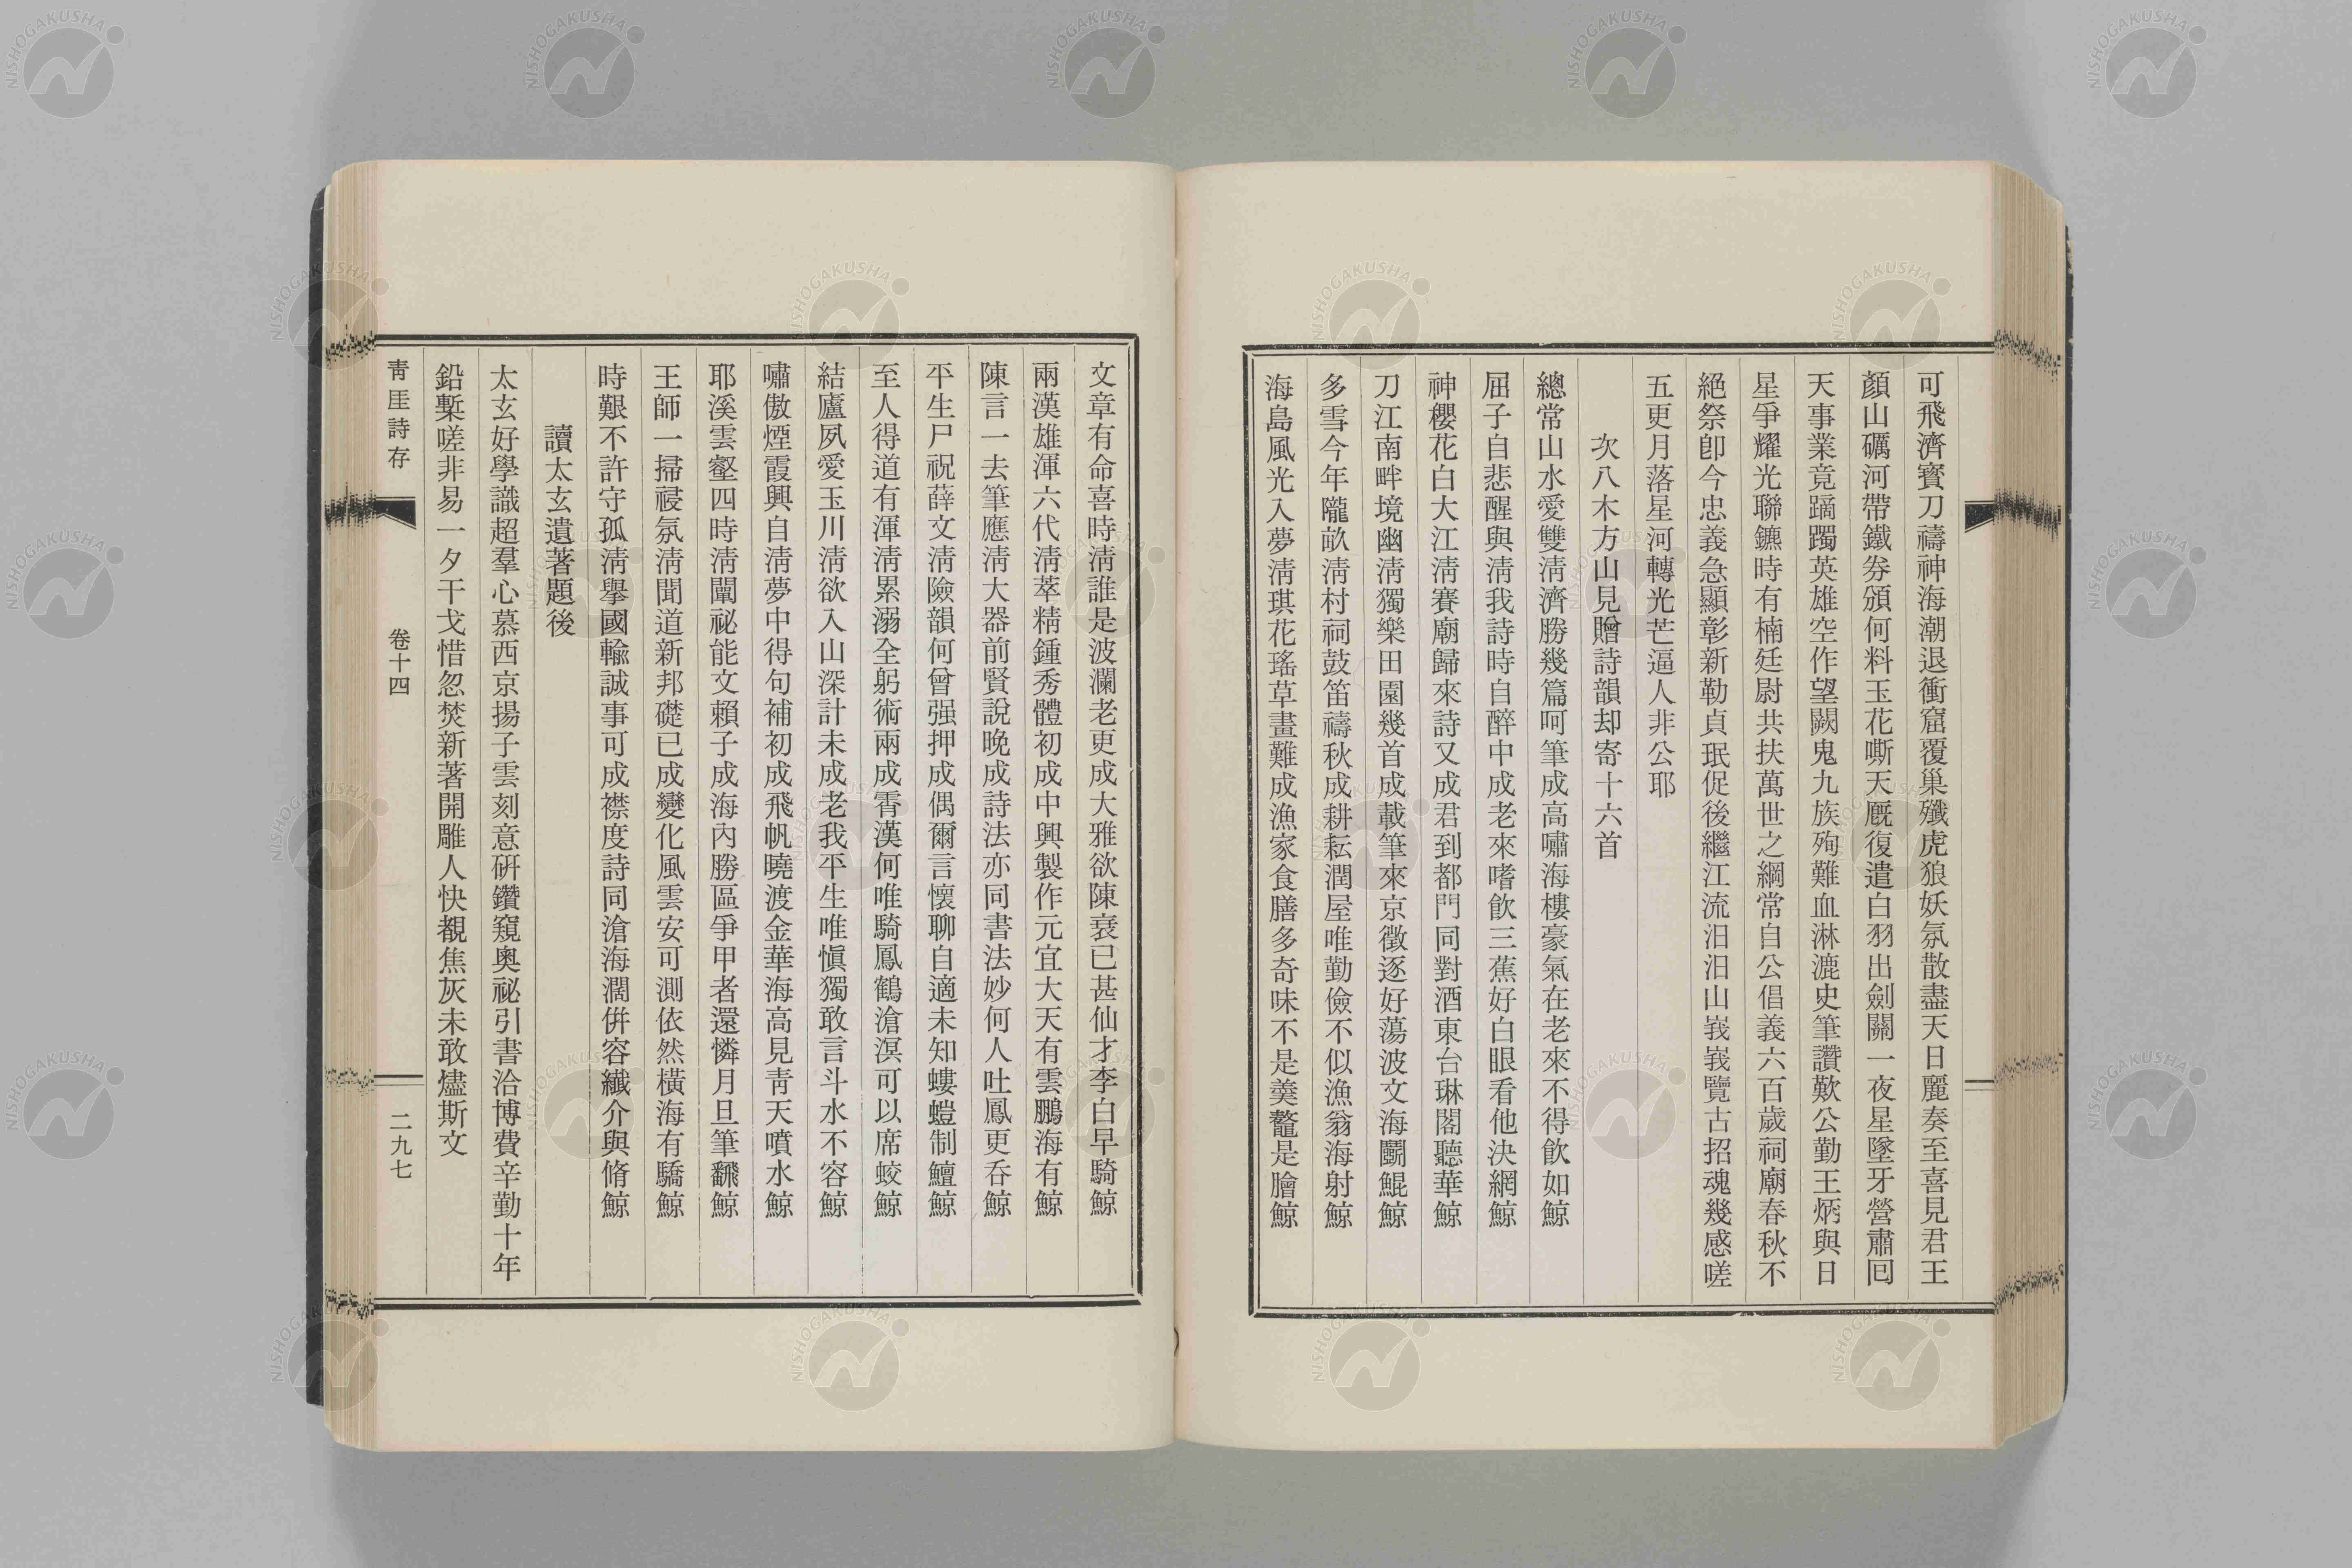 可飛濟寳刀禱神海潮退衝窟覆巢殲虎狼妖氛散盡天日麗奏至喜見君王
顏山礪河帶鐵券頒何料玉花嘶天厩復遣白羽出劍關一夜星墜牙營肅囘
天事業竟蹢躅英雄空作望闕鬼九族殉難血淋漉史筆讚歎公勤王炳與日
星爭耀光聯鑣時有楠廷尉共扶萬世之綱常自公倡義六百歲祠廟春秋不
絕祭卽今忠義急顯彰新勒貞珉促後繼江流汨汨山峩峩覽古招魂幾感嗟
五更月落星河轉光芒逼人非公耶
次八木方山見贈詩韻却寄十六首
總常山水愛雙淸濟勝幾篇呵筆成高嘯海樓豪氣在老來不得飮如鯨
屈子自悲醒與淸我詩時自醉中成老來嗜飮三蕉好白眼看他決網鯨
神櫻花白大江淸賽廟歸來詩又成君到都門同對酒東台琳閣聽華鯨
刀江南畔境幽淸獨樂田園幾首成載筆來京徵逐好蕩波文海鬭鯤鯨
多雪今年隴畝淸村祠鼓笛禱秋成耕耘潤屋唯勤儉不似漁翁海射鯨
海島風光入夢淸琪花瑤草畫難成漁家食膳多奇味不是羹鼇是膾鯨
文章有命喜時淸誰是波瀾老更成大雅欲陳衰已甚仙才李白早騎鯨
兩漢雄渾六代淸萃精鍾秀體初成中興製作元宜大天有雲鵬海有鯨
陳言一去筆應淸大器前賢說晚成詩法亦同書法妙何人吐鳳更呑鯨
平生尸祝薛文淸險韻何曾强押成偶爾言懷聊自適未知螻螘制鱣鯨
至人得道有渾淸累溺全躬術兩成霄漢何唯騎鳳鶴滄溟可以席蛟鯨
結廬夙愛玉川淸欲入山深計未成老我平生唯愼獨敢言斗水不容鯨
嘯傲煙霞興自淸夢中得句補初成飛帆曉渡金華海高見靑天噴水鯨
耶溪雲壑四時淸闡祕能文賴子成海內勝區爭甲者還憐月旦筆飜鯨
王師一掃祲氛淸聞道新邦礎已成變化風雲安可測依然橫海有驕鯨
時艱不許守孤淸擧國輸誠事可成襟度詩同滄海濶倂容纖介與脩鯨
讀太玄遺著題後
太玄好學識超羣心慕西京揚子雲刻意硏鑽窺奧祕引書洽博費辛勤十年
鉛槧嗟非易一夕干戈惜忽焚新著開雕人快覩焦灰未敢燼斯文
靑厓詩存
卷十四
二九七
NISHOGAKUSHA